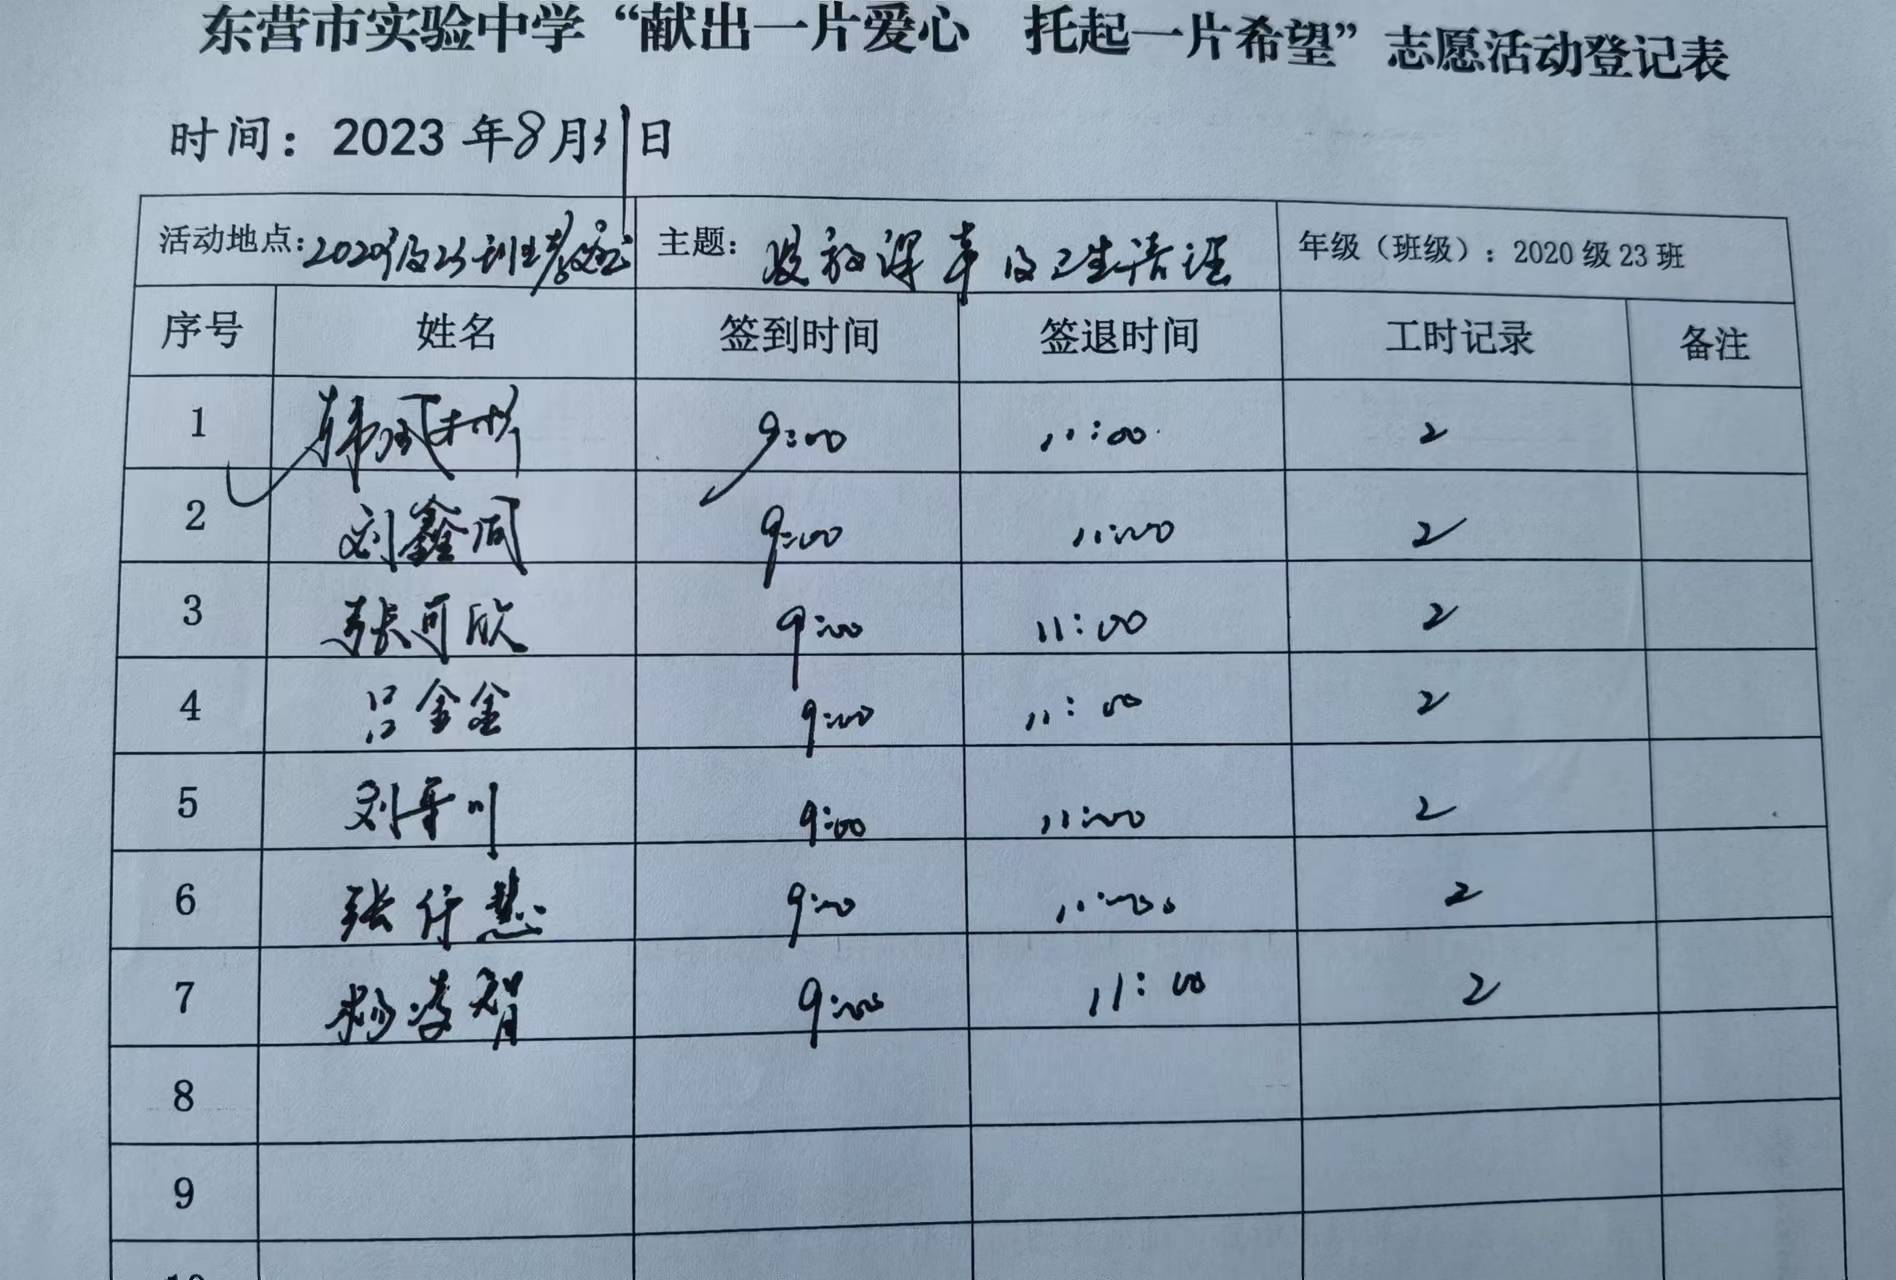 东营市实验中学“献出一片爱心 托起一片希望”志愿活动登记表
时间：2023年8月31日
活动地点：2020级23班教室 主题：课桌及卫生清理 年级（班级）：2020级23班
序号 姓名 签到时间 签退时间 工时记录 备注
1 韩风彬 9:00 11:00 2
2 刘鑫同 9:00 11:00 2
3 张可欣 9:00 11:00 2
4 吕金金 9:00 11:00 2
5 刘 川 9:00 11:00 2
6 张仟慧 9:00 11:00 2
7 杨凌智 9:00 11:00 2
8
9
10